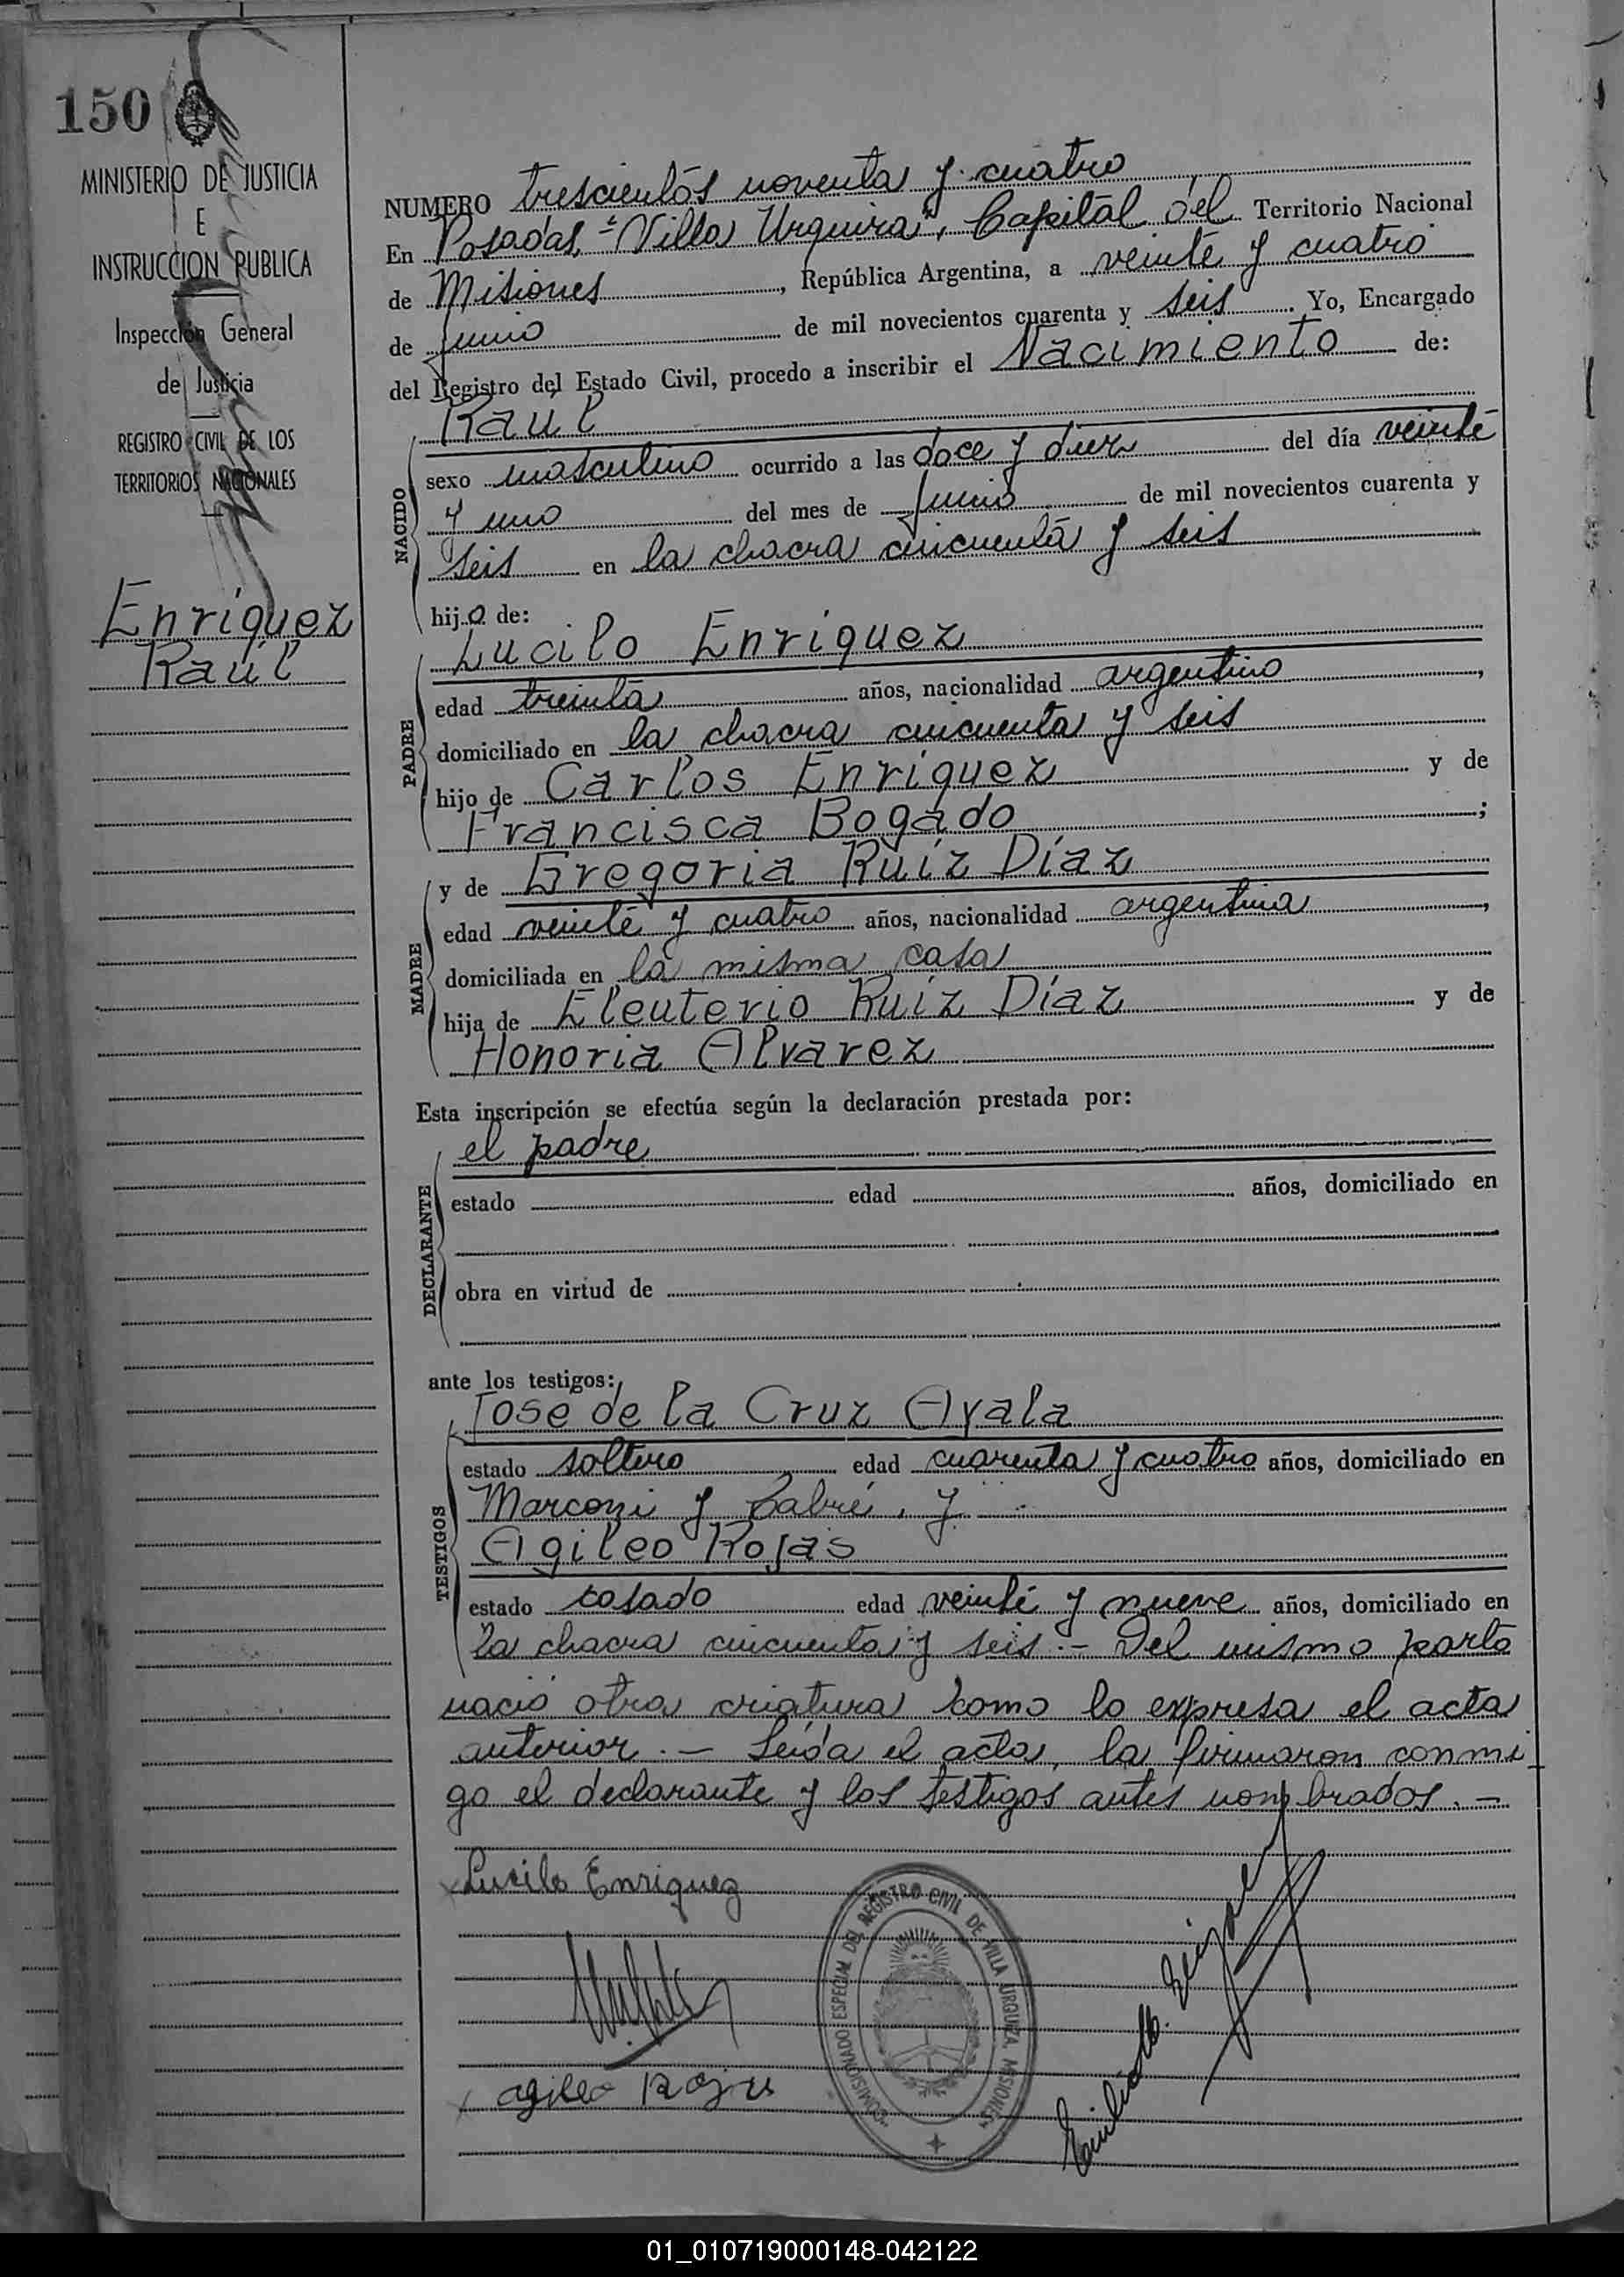 150
MINISTERIO DE JUSTICIA
E
INSTRUCCION PUBLICA
Inspección General
de Justicia
REGISTRO CIVIL DE LOS
TERRITORIOS NACIONALES
Enríquez
Raúl
NUMERO trescientos noventa y cuatro
En Posadas, "Villa Urquiza", Capital del Territorio Nacional
de Misiones, República Argentina, a veinte y cuatro
de junio de mil novecientos cuarenta y seis. Yo, Encargado
del Registro del Estado Civil, procedo a inscribir el Nacimiento de:
NACIDO
Raúl
sexo masculino ocurrido a las doce y diez del día veinte
y uno del mes de junio de mil novecientos cuarenta y
seis en la chacra cincuenta y seis
hijo de:
PADRE
Lucilo Enríquez
edad treinta años, nacionalidad argentino,
domiciliado en la chacra cincuenta y seis
hijo de Carlos Enríquez y de
Francisca Bogado;
MADRE
y de Gregoria Ruíz Díaz
edad veinte y cuatro años, nacionalidad argentina,
domiciliada en la misma casa
hija de Eleuterio Ruíz Díaz y de
Honoria Alvarez
Esta inscripción se efectúa según la declaración prestada por:
DECLARANTE
el padre
estado edad años, domiciliado en
obra en virtud de
ante los testigos:
TESTIGOS
José de la Cruz Ayala
estado soltero edad cuarenta y cuatro años, domiciliado en
Marconi y Cabré, y
Agileo Rojas
estado casado edad veinte y nueve años, domiciliado en
la chacra cincuenta y seis.- Del mismo parto
nació otra criatura como lo expresa el acta
anterior.- Leída el acta, la firmaron conmi
go el declarante y los testigos antes nombrados.-
Lucilo Enriquez
agileo Rojas
COMISIONADO ESPECIAL DEL REGISTRO CIVIL DE VILLA URQUIZA, MISIONES
01_010719000148-042122